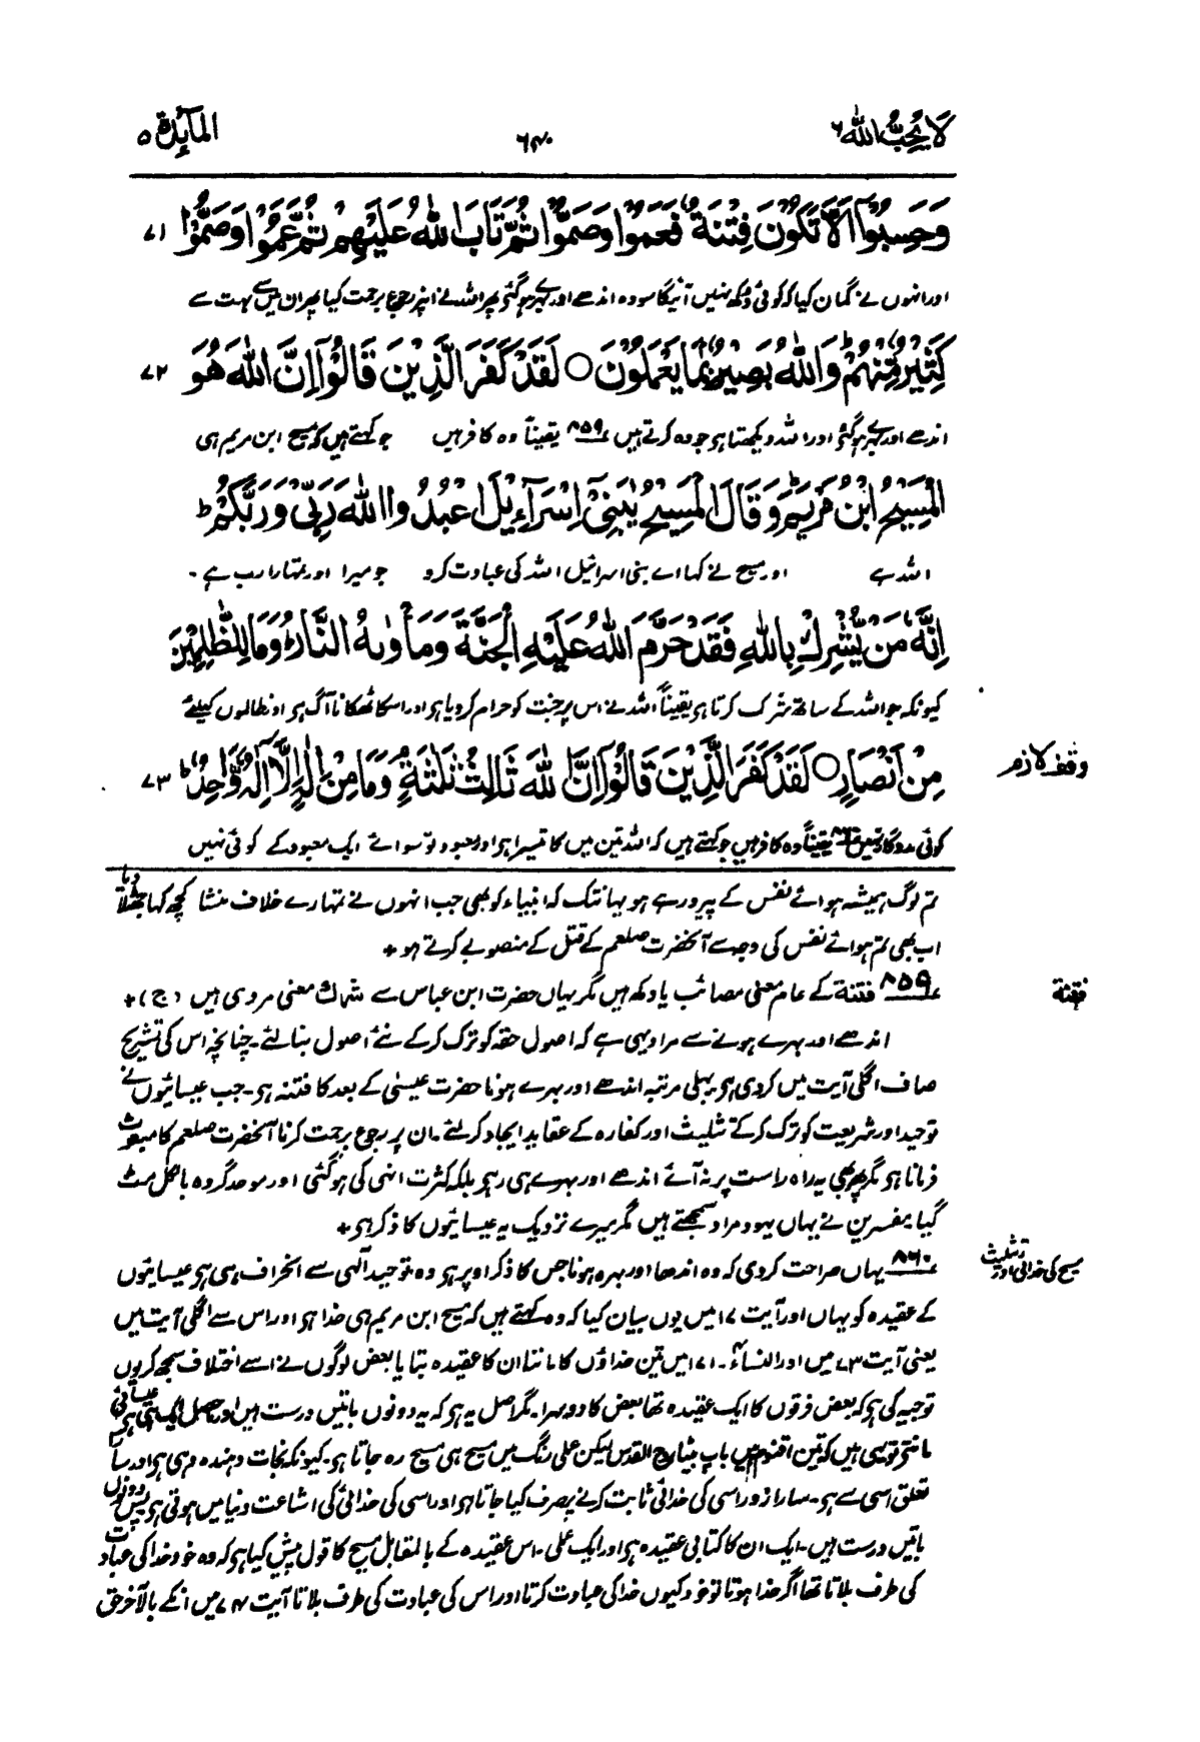 لَا يُحِبُّ اللّٰهُ ۶
۶۴۰
المآئدة ۵
وَحَسِبُوْٓا اَلَّا تَكُوْنَ فِتْنَةٌ فَعَمُوْا وَصَمُّوْا ثُمَّ تَابَ اللّٰهُ عَلَيْهِمْ ثُمَّ عَمُوْا وَصَمُّوْا ۷۱
اور انہوں نے گمان کیا کہ کوئی دُکھ نہیں آئیگا سو وہ اندھے اور بہرے ہو گئے پھر اللہ نے اپنے رجوع برحمت کیا پھر ان میں سے بہت سے
كَثِيْرٌ مِّنْهُمْ ؕ وَاللّٰهُ بَصِيْرٌۢ بِمَا يَعْمَلُوْنَ ○ لَقَدْ كَفَرَ الَّذِيْنَ قَالُوْٓا اِنَّ اللّٰهَ هُوَ ۷۲
اندھے اور بہرے ہو گئے اور اللہ دیکھتا ہے جو وہ کرتے ہیں ۸۵۹ یقیناً وہ کافر ہیں جو کہتے ہیں کہ مسیح ابن مریم ہی
الْمَسِيْحُ ابْنُ مَرْيَمَ ؕ وَقَالَ الْمَسِيْحُ يٰبَنِيْٓ اِسْرَآءِيْلَ اعْبُدُوا اللّٰهَ رَبِّيْ وَرَبَّكُمْ ؕ
اللہ ہے اور مسیح نے کہا اے بنی اسرائیل اللہ کی عبادت کرو جو میرا اور تمہارا رب ہے ۔
اِنَّهٗ مَنْ يُّشْرِكْ بِاللّٰهِ فَقَدْ حَرَّمَ اللّٰهُ عَلَيْهِ الْجَنَّةَ وَمَاْوٰىهُ النَّارُ ؕ وَمَا لِلظّٰلِمِيْنَ
کیونکہ جو اللہ کے ساتھ شرک کرتا ہے یقیناً اللہ نے اس پر جنت کو حرام کر دیا ہے اور اسکا ٹھکانا آگ ہے اور ظالموں کیلئے
مِنْ اَنْصَارٍ ○ لَقَدْ كَفَرَ الَّذِيْنَ قَالُوْٓا اِنَّ اللّٰهَ ثَالِثُ ثَلٰثَةٍ ۘ وَمَا مِنْ اِلٰهٍ اِلَّآ اِلٰهٌ وَّاحِدٌ ؕ ۷۳
وقف لازم
کوئی مددگار نہیں ۸۶۰ یقیناً وہ کافر ہیں جو کہتے ہیں کہ اللہ تین میں کا تیسرا ہے اور معبود تو سوائے ایک معبود کے کوئی نہیں
تم لوگ ہمیشہ ہوائے نفس کے پیرو رہے ہو یہانتک کہ انبیاء کو بھی جب انہوں نے تمہارے خلاف منشا کچھ کہا جھٹلا دیا
اب بھی تم ہوائے نفس کی وجہ سے آنحضرت صلعم کے قتل کے منصوبے کرتے ہو +
۸۵۹ فتنة کے عام معنی مصائب یا دکھ ہیں مگر یہاں حضرت ابن عباس سے شرك معنی مروی ہیں (ج) +
فتنة
اندھے اور بہرے ہونے سے مراد یہی ہے کہ اصول حقہ کو ترک کر کے نئے اصول بنا لئے۔ چنانچہ اس کی تشریح
صاف اگلی آیت میں کر دی ہے۔ پہلی مرتبہ اندھے اور بہرے ہونا حضرت عیسیٰ کے بعد کا فتنہ ہے۔ جب عیسائیوں نے
توحید اور شریعت کو ترک کر کے تثلیث اور کفارہ کے عقاید ایجاد کر لئے۔ ان پر رجوع برحمت کرنا آنحضرت صلعم کا مبعوث
فرمانا ہے مگر پھر بھی یہ راہ راست پر نہ آئے اندھے اور بہرے ہی رہے بلکہ کثرت انہی کی ہو گئی اور موحد گروہ بالکل مٹ
گیا۔ مفسرین نے یہاں یہود مراد سمجھتے ہیں مگر میرے نزدیک یہ عیسائیوں کا ذکر ہے +
۸۶۰ یہاں صراحت کر دی کہ وہ اندھا اور بہرہ ہونا جس کا ذکر اوپر ہے وہ توحید الٰہی سے انحراف ہی ہے عیسائیوں
مسیح کی خدائی اور تثلیث
کے عقیدہ کو یہاں اور آیت ۱۷ میں یوں بیان کیا کہ وہ کہتے ہیں کہ مسیح ابن مریم ہی خدا ہے اور اس سے اگلی آیت میں
یعنی آیت ۷۳ میں اور النساء۔ ۱۷۱ میں تین خداؤں کا ماننا ان کا عقیدہ بتایا بعض لوگوں نے اسے اختلاف سمجھ کر یوں
توجیہ کی ہے کہ بعض فرقوں کا ایک عقیدہ تھا بعض کا دوسرا۔ مگر اصل یہ ہے کہ یہ دونوں باتیں درست ہیں اور حاصل ایک ہی ہے عیسائی
مانتے تو یہی ہیں کہ تین اقنوم ہیں باپ بیٹا روح القدس لیکن عملی رنگ میں مسیح ہی مسیح رہ جاتا ہے۔ کیونکہ نجات دہندہ وہی ہے اور سارا
تعلق اسی سے ہے۔ سارا زور اسی کی خدائی ثابت کرنے پر صرف کیا جاتا ہے اور اسی کی خدائی کی اشاعت دنیا میں ہوتی ہے پس دونوں
باتیں درست ہیں۔ ایک ان کا کتابی عقیدہ ہے اور ایک عملی۔ اس عقیدہ کے بالمقابل مسیح کا قول پیش کیا ہے کہ وہ خود خدا کی عبادت
کی طرف بلاتا تھا اگر خدا ہوتا تو خود کیوں خدا کی عبادت کرتا اور اس کی عبادت کی طرف بلاتا آیت ۷۴ میں انکے بالآخر حق